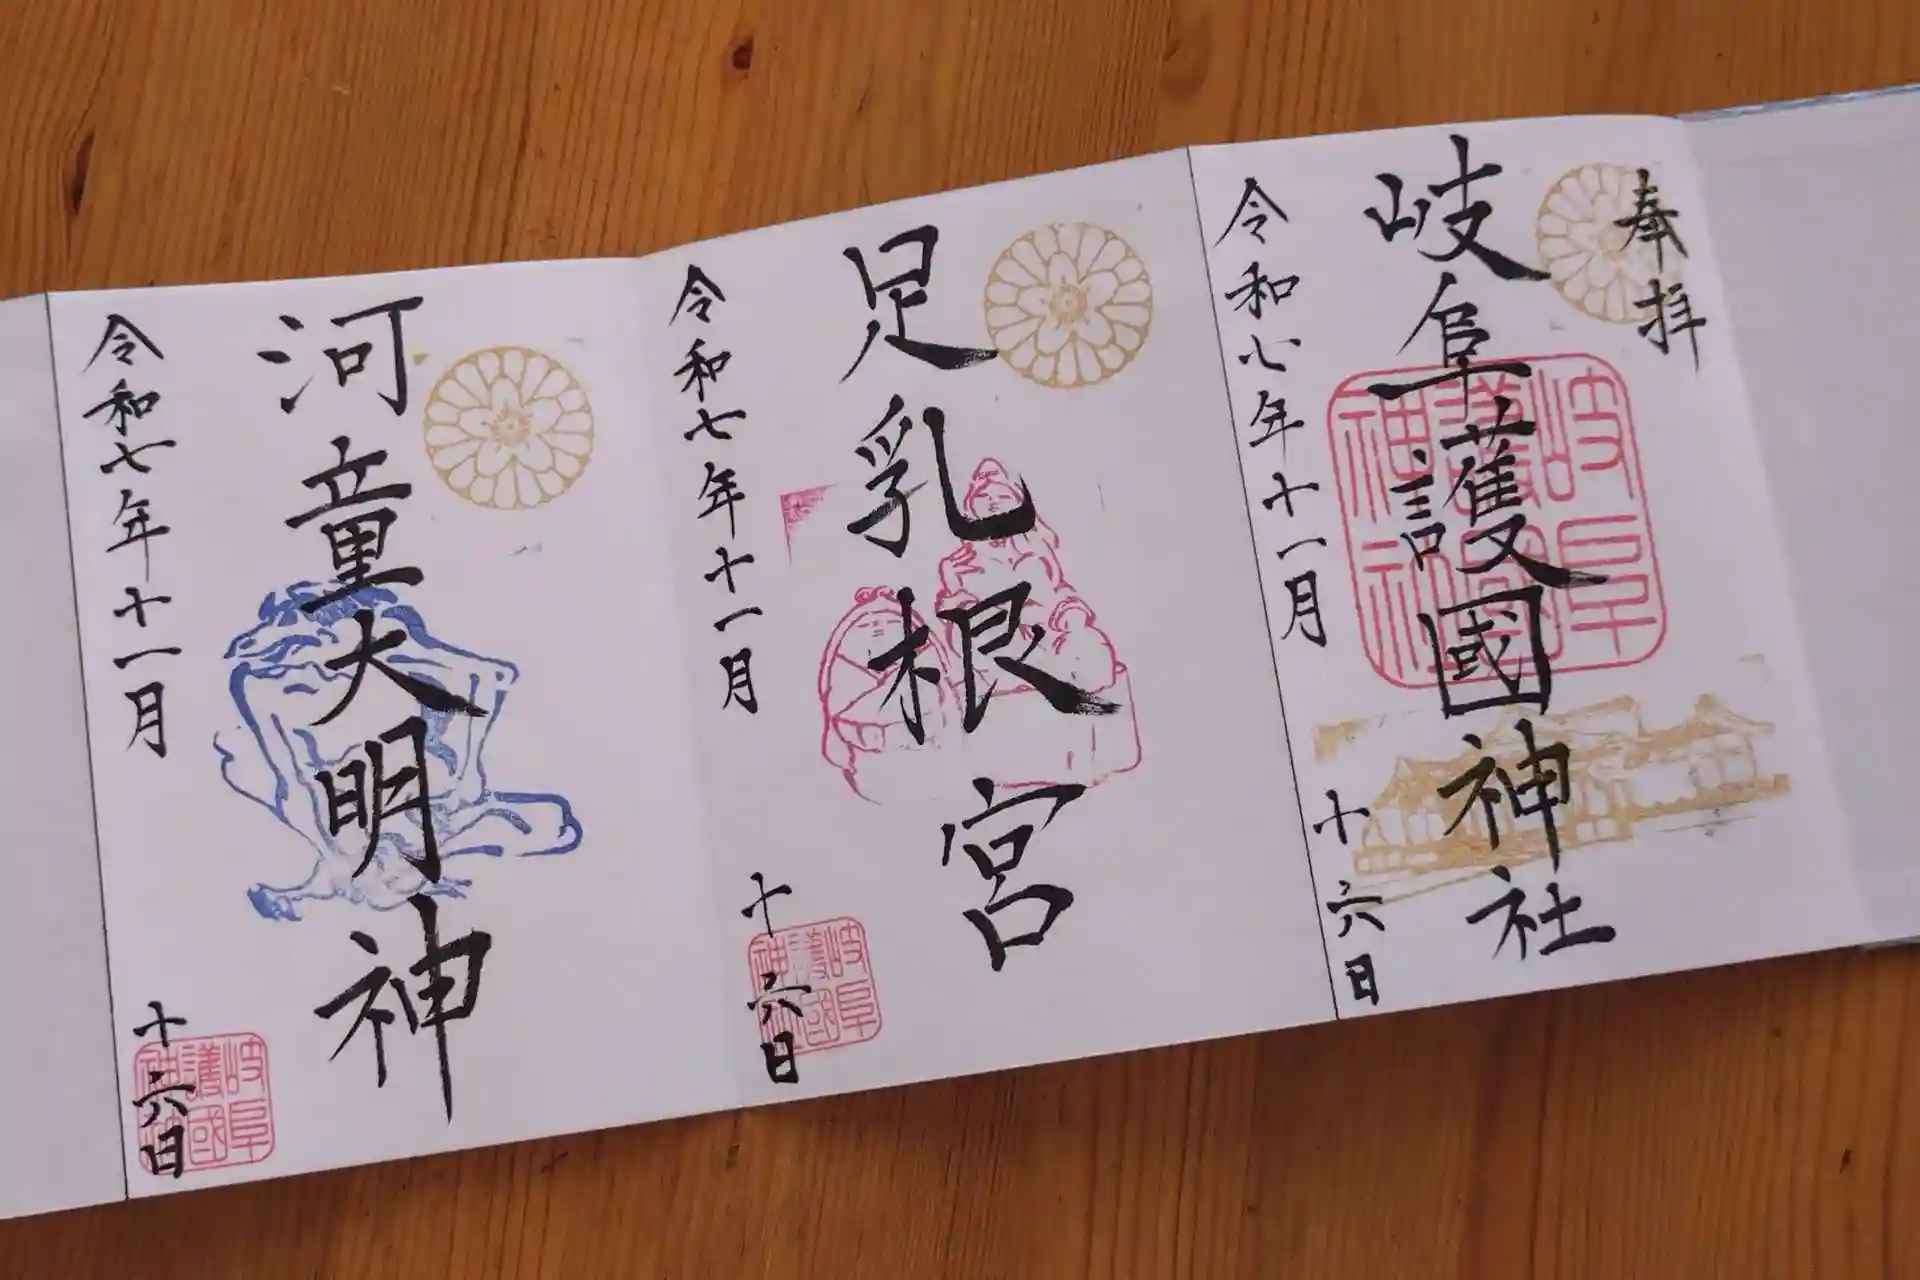 奉拝
岐阜護國神社
岐阜
護國
神社
令和七年十一月十六日
足乳根宮
令和七年十一月十六日
岐阜
護國
神社
河童大明神
令和七年十一月十六日
岐阜
護國
神社